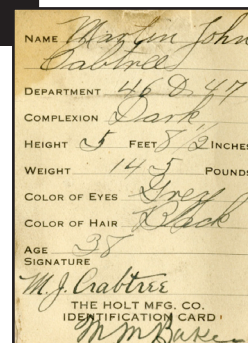 NAME Martin John
Crabtree
DEPARTMENT 46 D. 47
COMPLEXION Dark
HEIGHT 5 FEET 8 1/2 INCHES
WEIGHT 145 POUNDS
COLOR OF EYES Grey
COLOR OF HAIR Black
AGE 38
SIGNATURE
M.J. Crabtree
THE HOLT MFG. CO.
IDENTIFICATION CARD
M M Baker